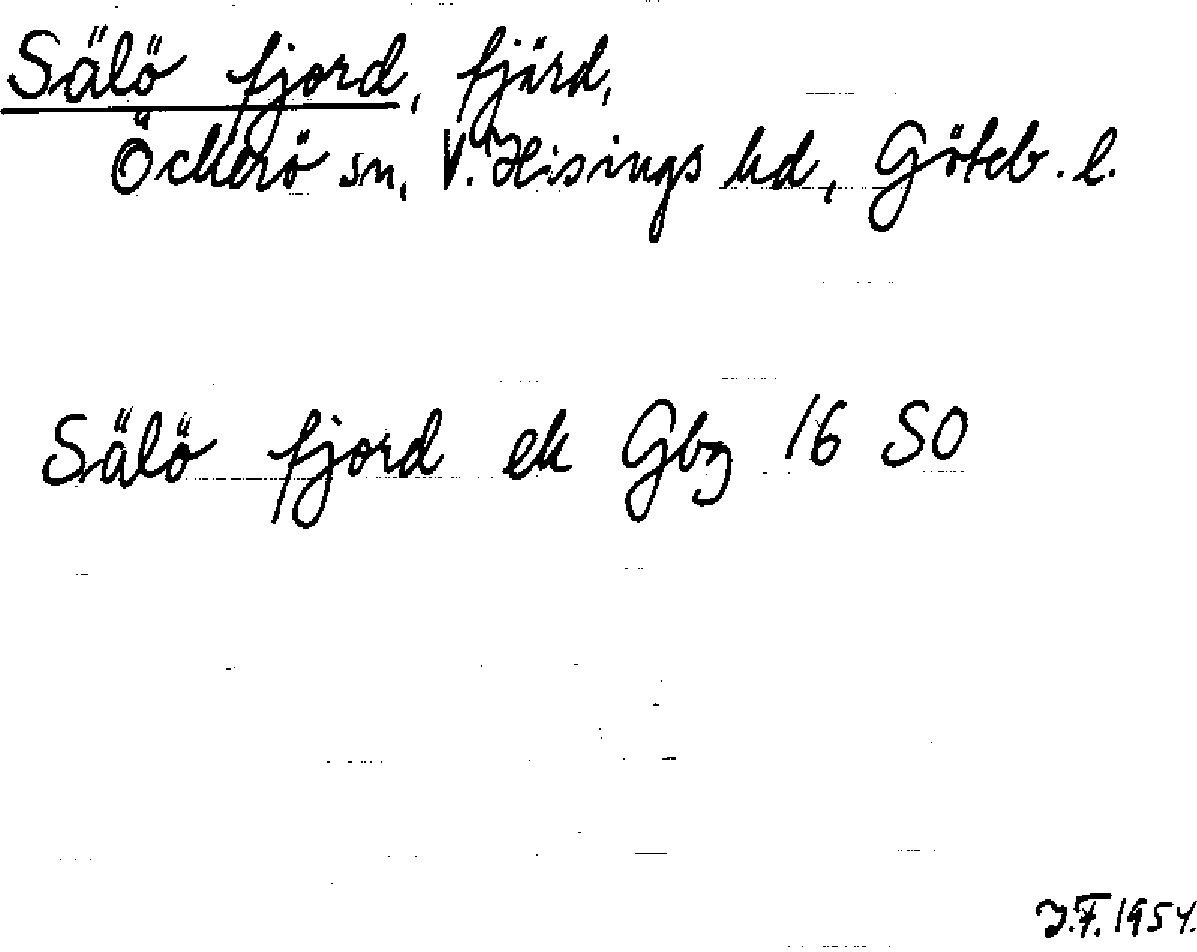 Sälö fjord, fjärd,
Öckerö sn, V. Hisings hd, Göteb. l.
Sälö fjord ek Gbg 16 SO
J.F. 1954.